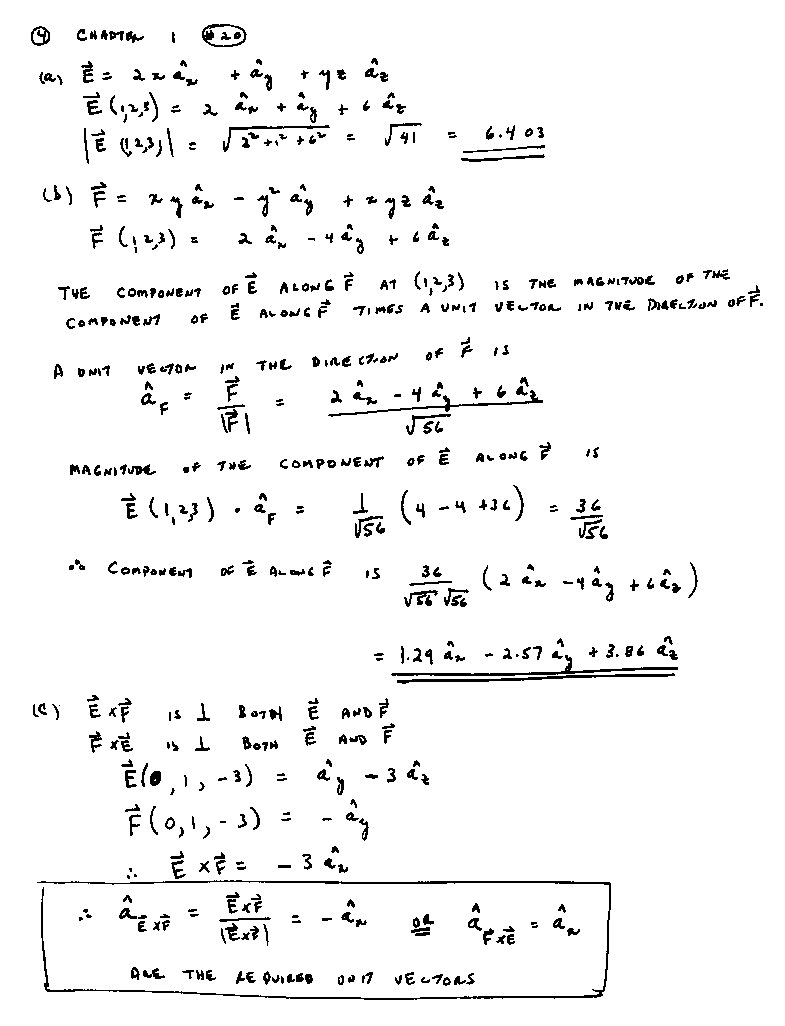 ④ CHAPTER 1 #20
(a) E⃗ = 2x âx + ây + yz âz
E⃗ (1,2,3) = 2 âx + ây + 6 âz
|E⃗ (1,2,3)| = √(2² + 1² + 6²) = √41 = 6.403
(b) F⃗ = xy âx - y² ây + xyz âz
F⃗ (1,2,3) = 2 âx - 4 ây + 6 âz
THE COMPONENT OF E⃗ ALONG F⃗ AT (1,2,3) IS THE MAGNITUDE OF THE
COMPONENT OF E⃗ ALONG F⃗ TIMES A UNIT VECTOR IN THE DIRECTION OF F⃗.
A UNIT VECTOR IN THE DIRECTION OF F⃗ IS
âF = F⃗/|F⃗| = (2 âx - 4 ây + 6 âz)/√56
MAGNITUDE OF THE COMPONENT OF E⃗ ALONG F⃗ IS
E⃗ (1,2,3) · âF = 1/√56 (4 - 4 + 36) = 36/√56
∴ COMPONENT OF E⃗ ALONG F⃗ IS 36/(√56 √56) (2 âx - 4 ây + 6 âz)
= 1.29 âx - 2.57 ây + 3.86 âz
(c) E⃗ × F⃗ IS ⊥ BOTH E⃗ AND F⃗
F⃗ × E⃗ IS ⊥ BOTH E⃗ AND F⃗
E⃗(0, 1, -3) = ây - 3 âz
F⃗(0, 1, -3) = - ây
∴ E⃗ × F⃗ = - 3 âx
∴ âE⃗×F⃗ = E⃗×F⃗/|E⃗×F⃗| = - âx OR âF⃗×E⃗ = âx
ARE THE REQUIRED UNIT VECTORS